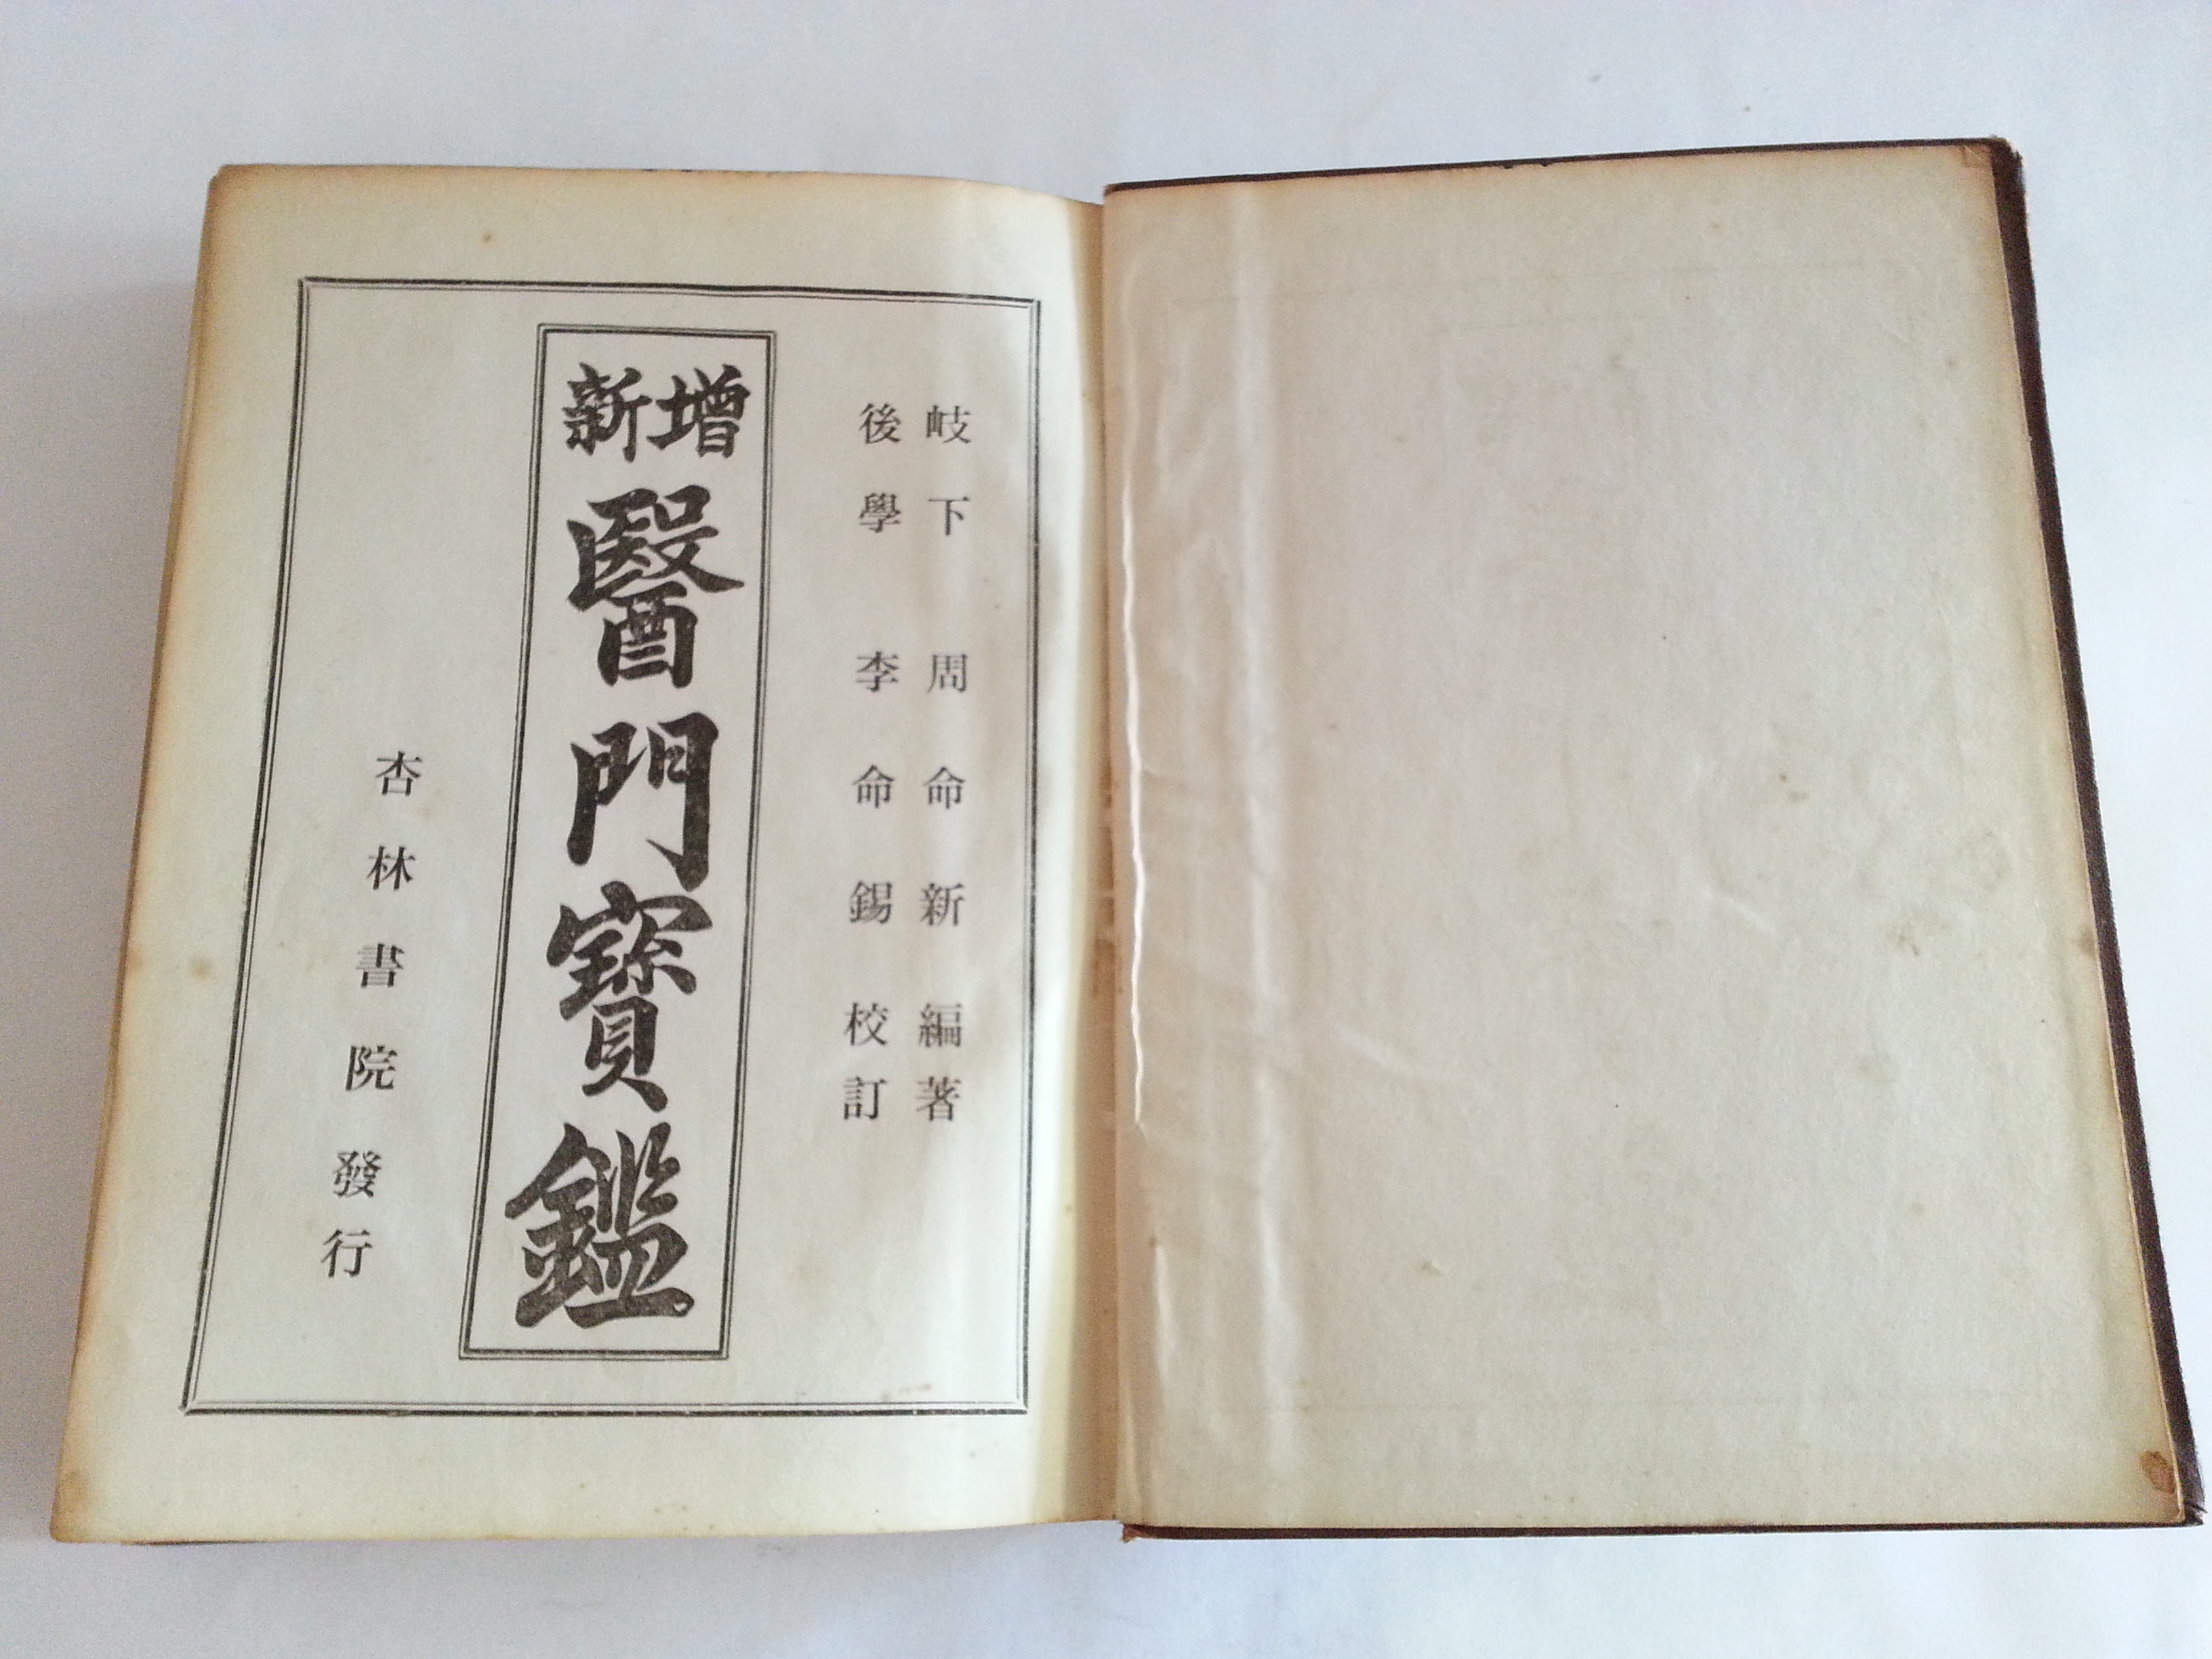 岐下 周命新 編著
後學 李命錫 校訂
增新
醫門寳鑑
杏林書院 發行